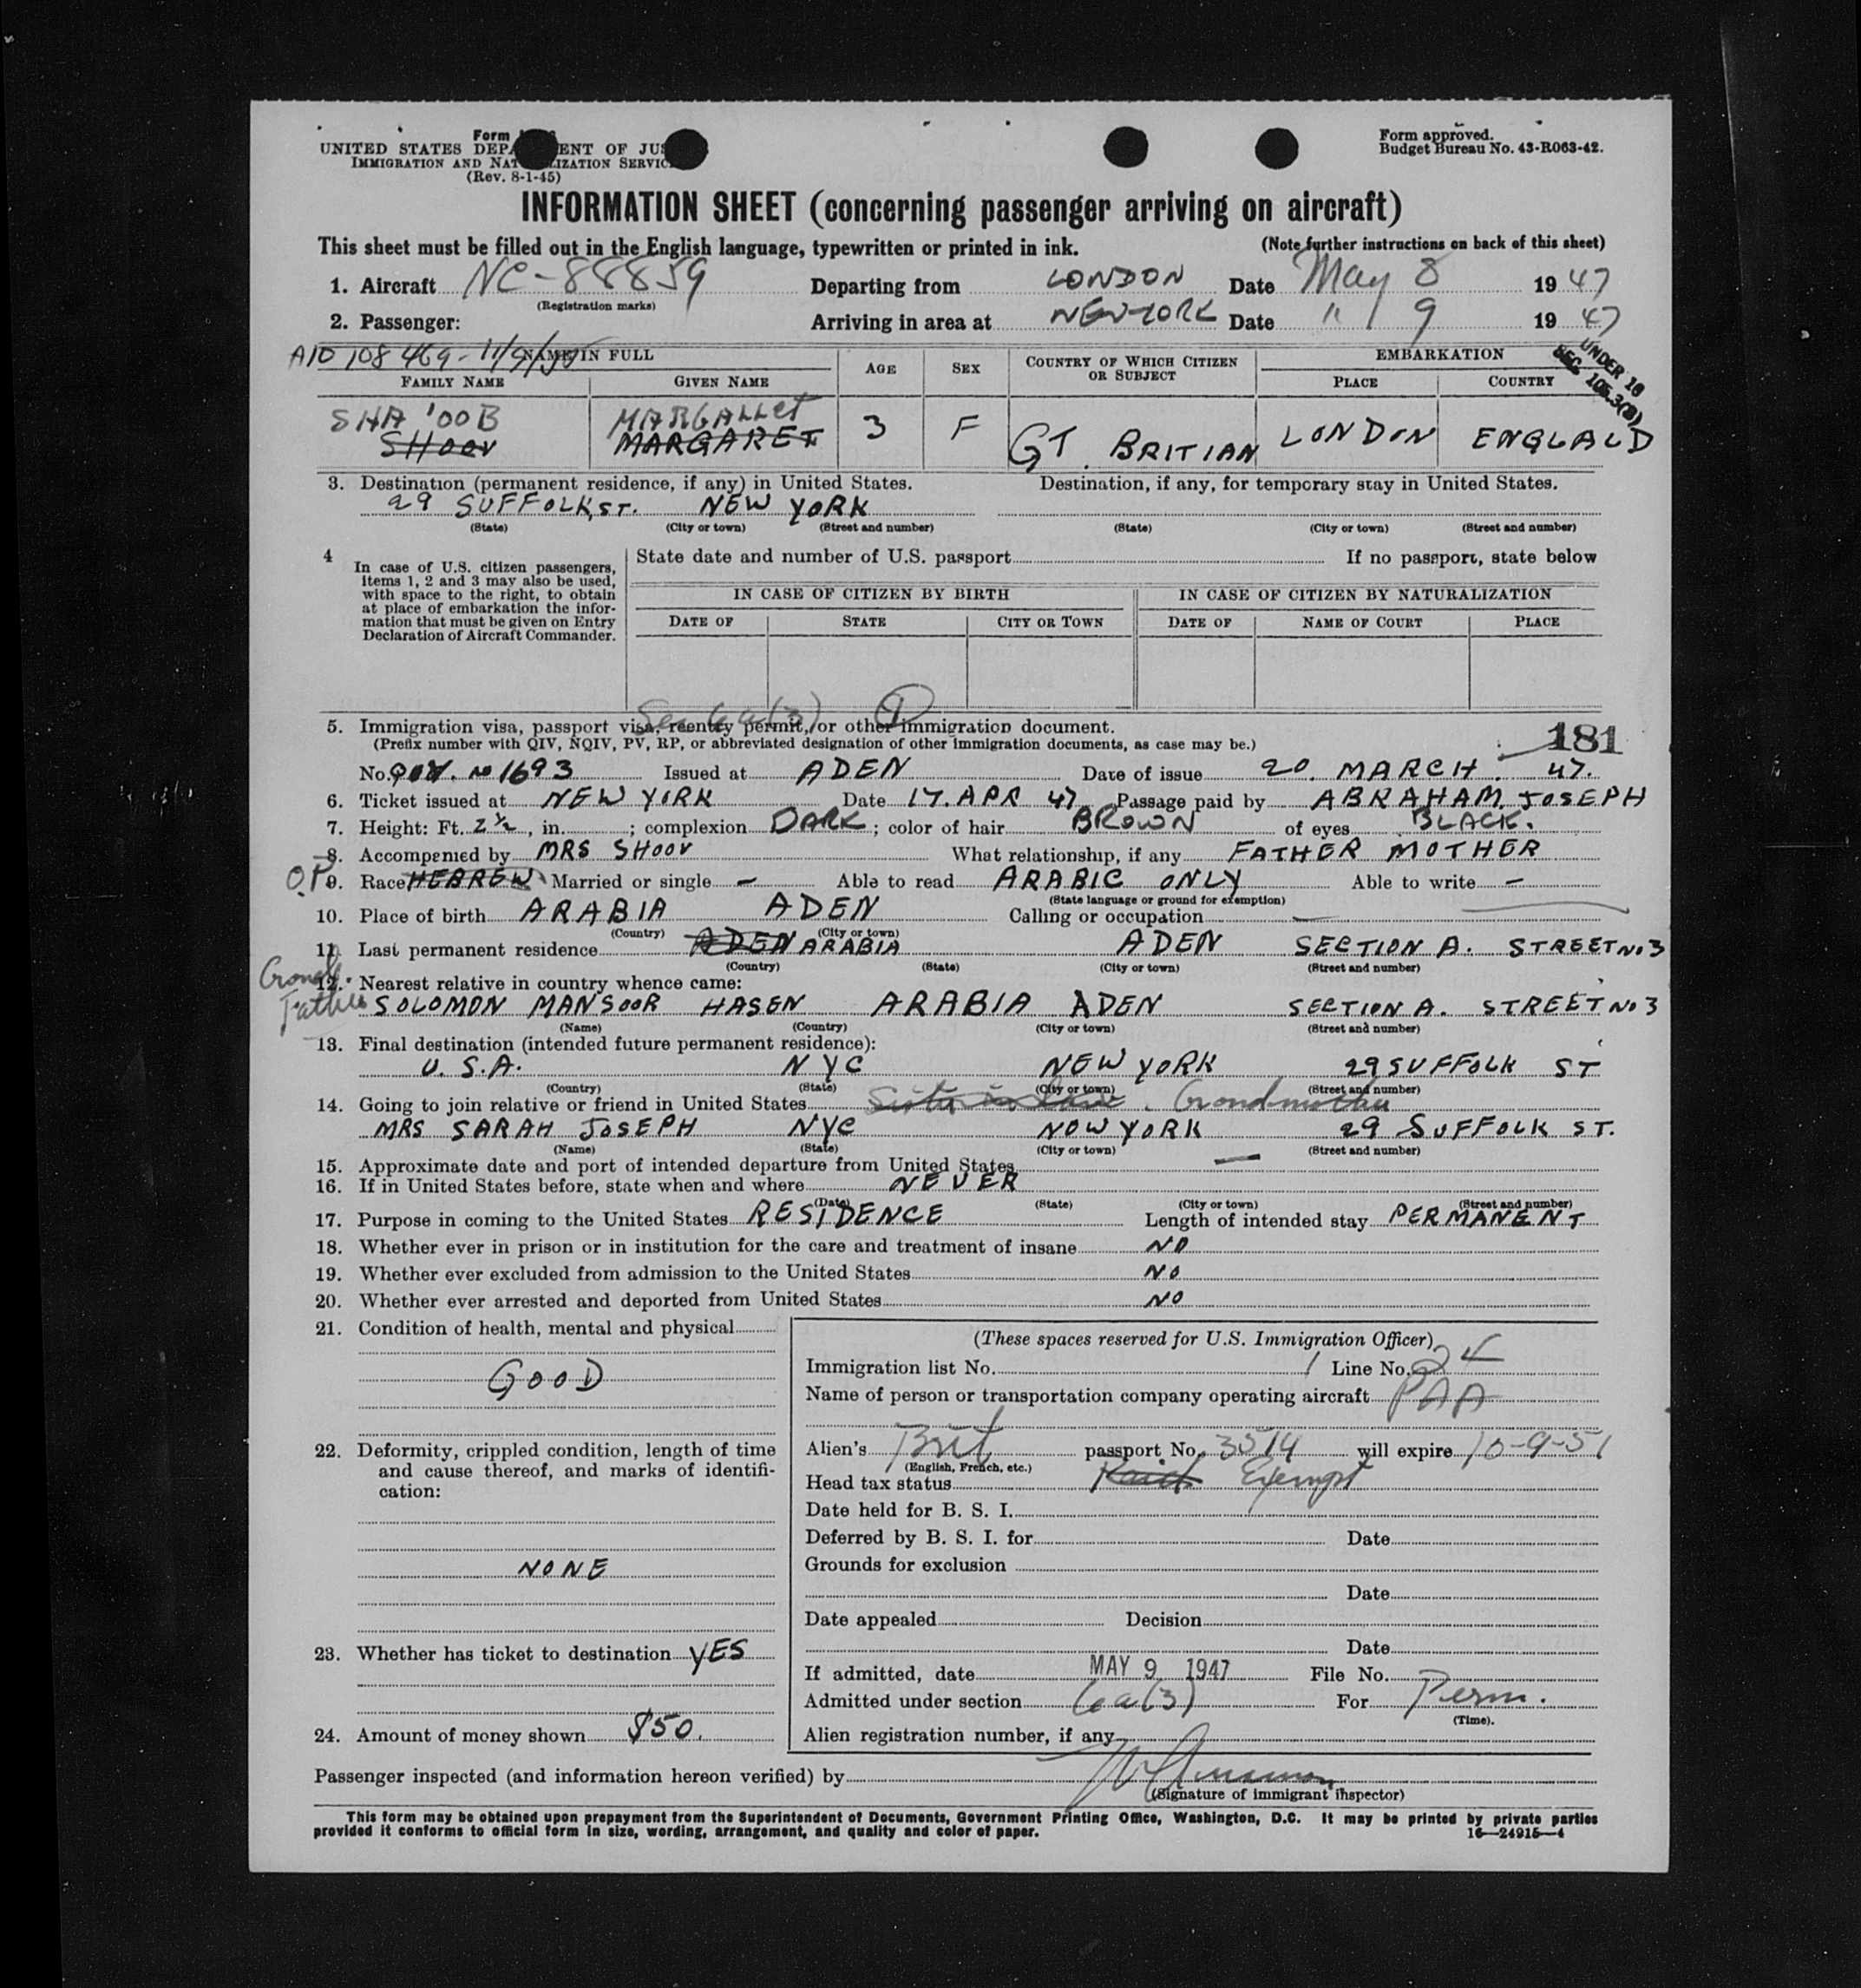 Form
UNITED STATES DEPA ENT OF JUS
IMMIGRATION AND NAT LIZATION SERVIC
(Rev. 8-1-45)
Form approved.
Budget Bureau No. 43-R063-42.
INFORMATION SHEET (concerning passenger arriving on aircraft)
This sheet must be filled out in the English language, typewritten or printed in ink. (Note further instructions on back of this sheet)
1. Aircraft NC-88859 Departing from LONDON Date May 8 1947
(Registration marks)
2. Passenger: Arriving in area at NEW YORK Date " 9 1947
A10 108 469 - 11/9/50 NAME IN FULL AGE SEX COUNTRY OF WHICH CITIZEN OR SUBJECT EMBARKATION
UNDER 16
SEC. 105.3(B)
FAMILY NAME GIVEN NAME PLACE COUNTRY
SHA'OOB MARGALLET
SHOOV MARGARET 3 F GT. BRITIAN LONDON ENGLALD
3. Destination (permanent residence, if any) in United States. Destination, if any, for temporary stay in United States.
29 SUFFOLK, ST. NEW YORK
(State) (City or town) (Street and number) (State) (City or town) (Street and number)
4 In case of U.S. citizen passengers, items 1, 2 and 3 may also be used, with space to the right, to obtain at place of embarkation the information that must be given on Entry Declaration of Aircraft Commander.
State date and number of U.S. passport If no passport, state below
IN CASE OF CITIZEN BY BIRTH IN CASE OF CITIZEN BY NATURALIZATION
DATE OF STATE CITY OR TOWN DATE OF NAME OF COURT PLACE
Sec 6a(3) 1
5. Immigration visa, passport visa, reentry permit, or other immigration document.
(Prefix number with QIV, NQIV, PV, RP, or abbreviated designation of other immigration documents, as case may be.)
181
No. QIV. No 1693 Issued at ADEN Date of issue 20. MARCH. 47.
6. Ticket issued at NEW YORK Date 17. APR 47 Passage paid by ABRAHAM JOSEPH
7. Height: Ft. 2½, in. ; complexion DARK; color of hair BROWN of eyes BLACK.
8. Accompenied by MRS SHOOV What relationship, if any FATHER MOTHER
O.P. 9. Race HEBREW Married or single — Able to read ARABIC ONLY Able to write —
(State language or ground for exemption)
10. Place of birth ARABIA ADEN Calling or occupation —
(Country) (City or town)
11. Last permanent residence ADEN ARABIA ADEN SECTION A. STREET No 3
(Country) (State) (City or town) (Street and number)
Grand Father
12. Nearest relative in country whence came:
SOLOMON MANSOOR HASEN ARABIA ADEN SECTION A. STREET No 3
(Name) (Country) (City or town) (Street and number)
13. Final destination (intended future permanent residence):
U. S. A. NYC NEW YORK 29 SUFFOLK ST
(Country) (State) (City or town) (Street and number)
14. Going to join relative or friend in United States Sister in law. Grandmother
MRS SARAH JOSEPH NYC NOW YORK 29 SUFFOLK ST.
(Name) (State) (City or town) (Street and number)
15. Approximate date and port of intended departure from United States —
16. If in United States before, state when and where NEVER
(Date) (State) (City or town) (Street and number)
17. Purpose in coming to the United States RESIDENCE Length of intended stay PERMANENT
18. Whether ever in prison or in institution for the care and treatment of insane NO
19. Whether ever excluded from admission to the United States NO
20. Whether ever arrested and deported from United States NO
21. Condition of health, mental and physical
GOOD
22. Deformity, crippled condition, length of time and cause thereof, and marks of identification:
NONE
23. Whether has ticket to destination YES
24. Amount of money shown $50.
(These spaces reserved for U.S. Immigration Officer)
Immigration list No. 1 Line No. 24
Name of person or transportation company operating aircraft PAA
Alien's Brit passport No. 3514 will expire 10-9-51
(English, French, etc.)
Head tax status Paid Exempt
Date held for B. S. I.
Deferred by B. S. I. for Date
Grounds for exclusion
Date
Date appealed Decision
Date
If admitted, date MAY 9 1947 File No.
Admitted under section 6a(3) For Perm.
(Time).
Alien registration number, if any
Passenger inspected (and information hereon verified) by
(Signature of immigrant inspector)
This form may be obtained upon prepayment from the Superintendent of Documents, Government Printing Office, Washington, D.C. It may be printed by private parties
provided it conforms to official form in size, wording, arrangement, and quality and color of paper. 16—24915—4